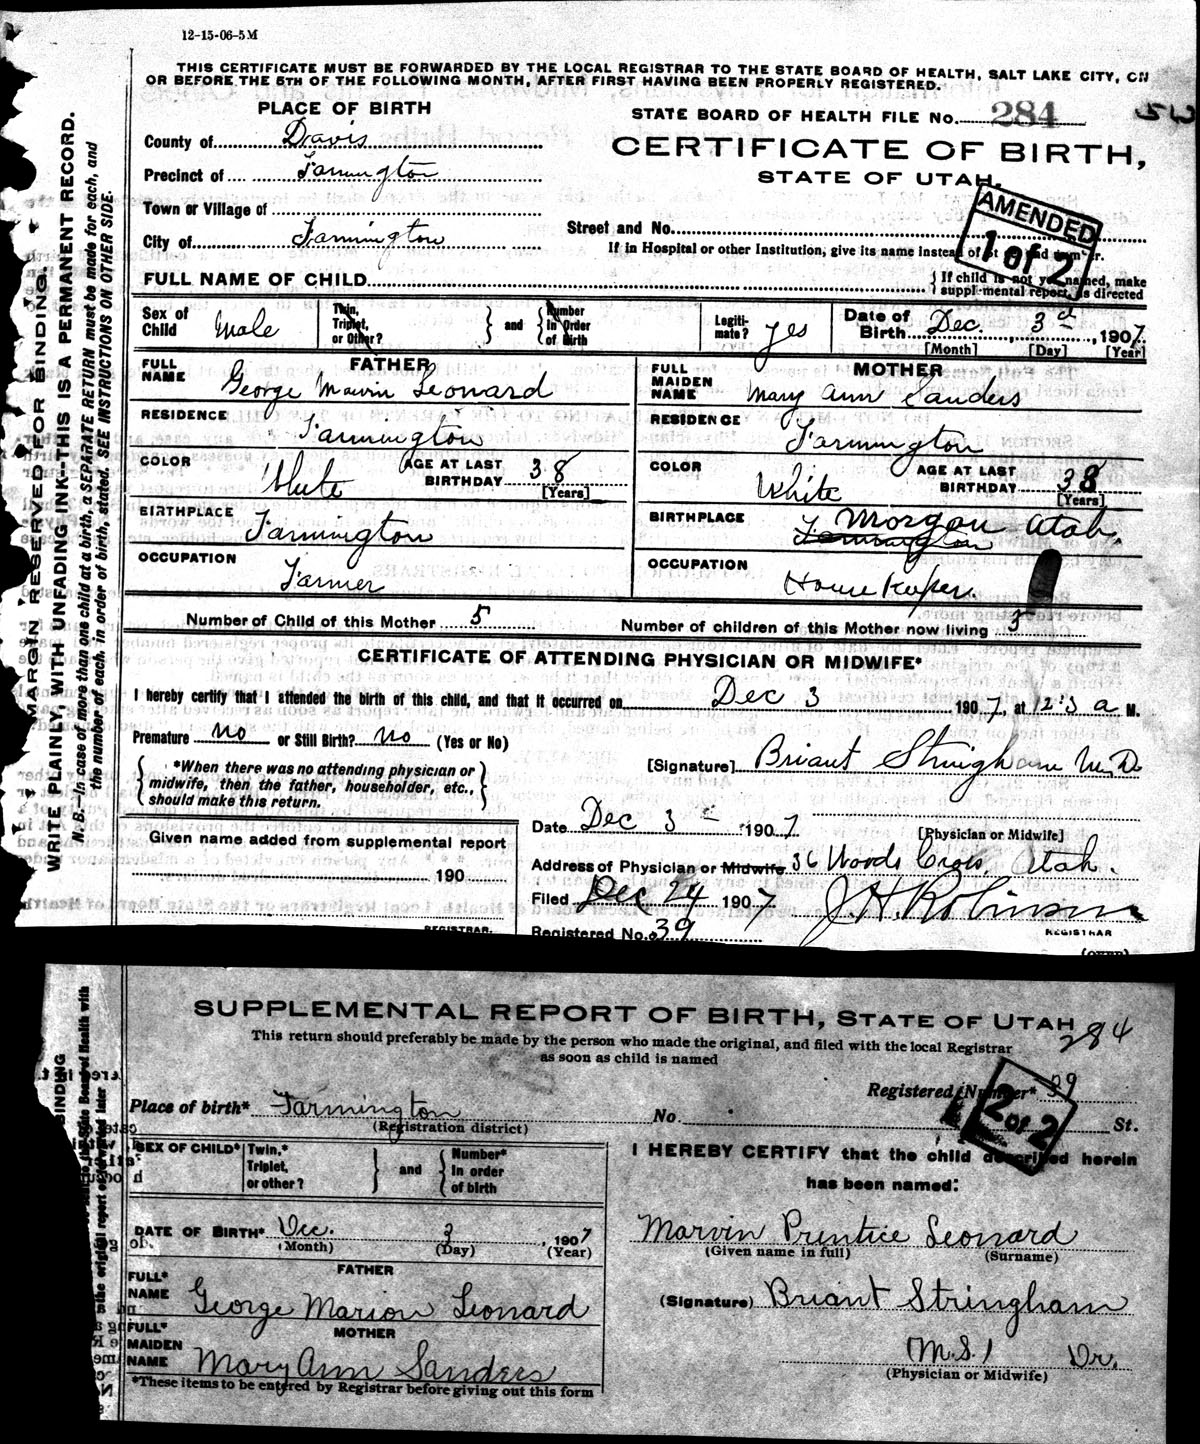 12-15-06-5M
THIS CERTIFICATE MUST BE FORWARDED BY THE LOCAL REGISTRAR TO THE STATE BOARD OF HEALTH, SALT LAKE CITY, ON
OR BEFORE THE 5TH OF THE FOLLOWING MONTH, AFTER FIRST HAVING BEEN PROPERLY REGISTERED.
PLACE OF BIRTH
STATE BOARD OF HEALTH FILE No. 284
County of Davis
CERTIFICATE OF BIRTH,
Precinct of Farmington
STATE OF UTAH.
Town or Village of
AMENDED
1 of 2
City of Farmington
Street and No.
If in Hospital or other Institution, give its name instead of st and number.
FULL NAME OF CHILD
If child is not yet named, make
supplemental report, as directed
Sex of Child Male
Twin, Triplet, or Other?
and
Number In Order of Birth
Legitimate? yes
Date of Birth Dec. 3d, 1907
[Month] [Day] [Year]
FATHER
FULL NAME George Marvin Leonard
MOTHER
FULL MAIDEN NAME Mary Ann Sanders
RESIDENCE Farmington
RESIDENCE Farmington
COLOR White
AGE AT LAST BIRTHDAY 38
[Years]
COLOR White
AGE AT LAST BIRTHDAY 38
[Years]
BIRTHPLACE Farmington
BIRTHPLACE Farmington Morgan Utah.
OCCUPATION Farmer
OCCUPATION House Keeper.
Number of Child of this Mother 5
Number of children of this Mother now living 5
CERTIFICATE OF ATTENDING PHYSICIAN OR MIDWIFE*
I hereby certify that I attended the birth of this child, and that it occurred on Dec 3 1907, at 12:3 a M.
Premature no or Still Birth? no (Yes or No)
[Signature] Briant Stringham M.D.
*When there was no attending physician or
midwife, then the father, householder, etc.,
should make this return.
Date Dec 3 1907
[Physician or Midwife]
Given name added from supplemental report
190
Address of Physician or Midwife 36 Woods Cross, Utah.
Filed Dec 24 1907 J.H. Robinson
REGISTRAR.
Registered No. 39
REGISTRAR
(OVER)
MARGIN RESERVED FOR BINDING.
WRITE PLAINLY, WITH UNFADING INK--THIS IS A PERMANENT RECORD.
N. B.--In case of more than one child at a birth, a SEPARATE RETURN must be made for each, and
the number of each, in order of birth, stated. SEE INSTRUCTIONS ON OTHER SIDE.
SUPPLEMENTAL REPORT OF BIRTH, STATE OF UTAH
284
This return should preferably be made by the person who made the original, and filed with the local Registrar
as soon as child is named
Registered Number* 39
2 of 2
Place of birth* Farmington No. St.
(Registration district)
SEX OF CHILD*
Twin,* Triplet, or other?
and
Number* In order of birth
I HEREBY CERTIFY that the child described herein
has been named:
DATE OF BIRTH* Dec. 3, 1907
(Month) (Day) (Year)
Marvin Prentice Leonard
(Given name in full) (Surname)
FATHER
FULL* NAME George Marion Leonard
(Signature) Briant Stringham
MOTHER
FULL* MAIDEN NAME Mary Ann Sanders
Dr.
(Physician or Midwife)
*These items to be entered by Registrar before giving out this form
BINDING